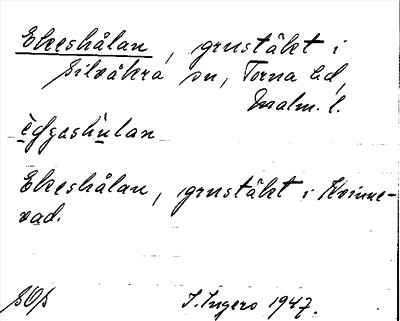 Ekeshålan, grustäkt i
Silvåkra sn, Torna hd,
Malm. l.
Ekeshålan, grustäkt i Kvinne-
vad.
SOS I. Ingers 1947.